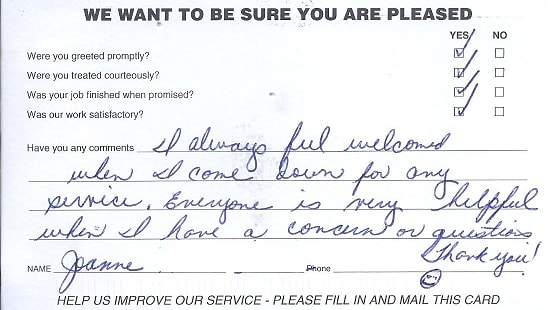 WE WANT TO BE SURE YOU ARE PLEASED
YES NO
Were you greeted promptly?
Were you treated courteously?
Was your job finished when promised?
Was our work satisfactory?
Have you any comments I always feel welcomed
when I come down for any
service. Everyone is very helpful
when I have a concern or questions
Thank you!
NAME Joanne Phone
HELP US IMPROVE OUR SERVICE - PLEASE FILL IN AND MAIL THIS CARD